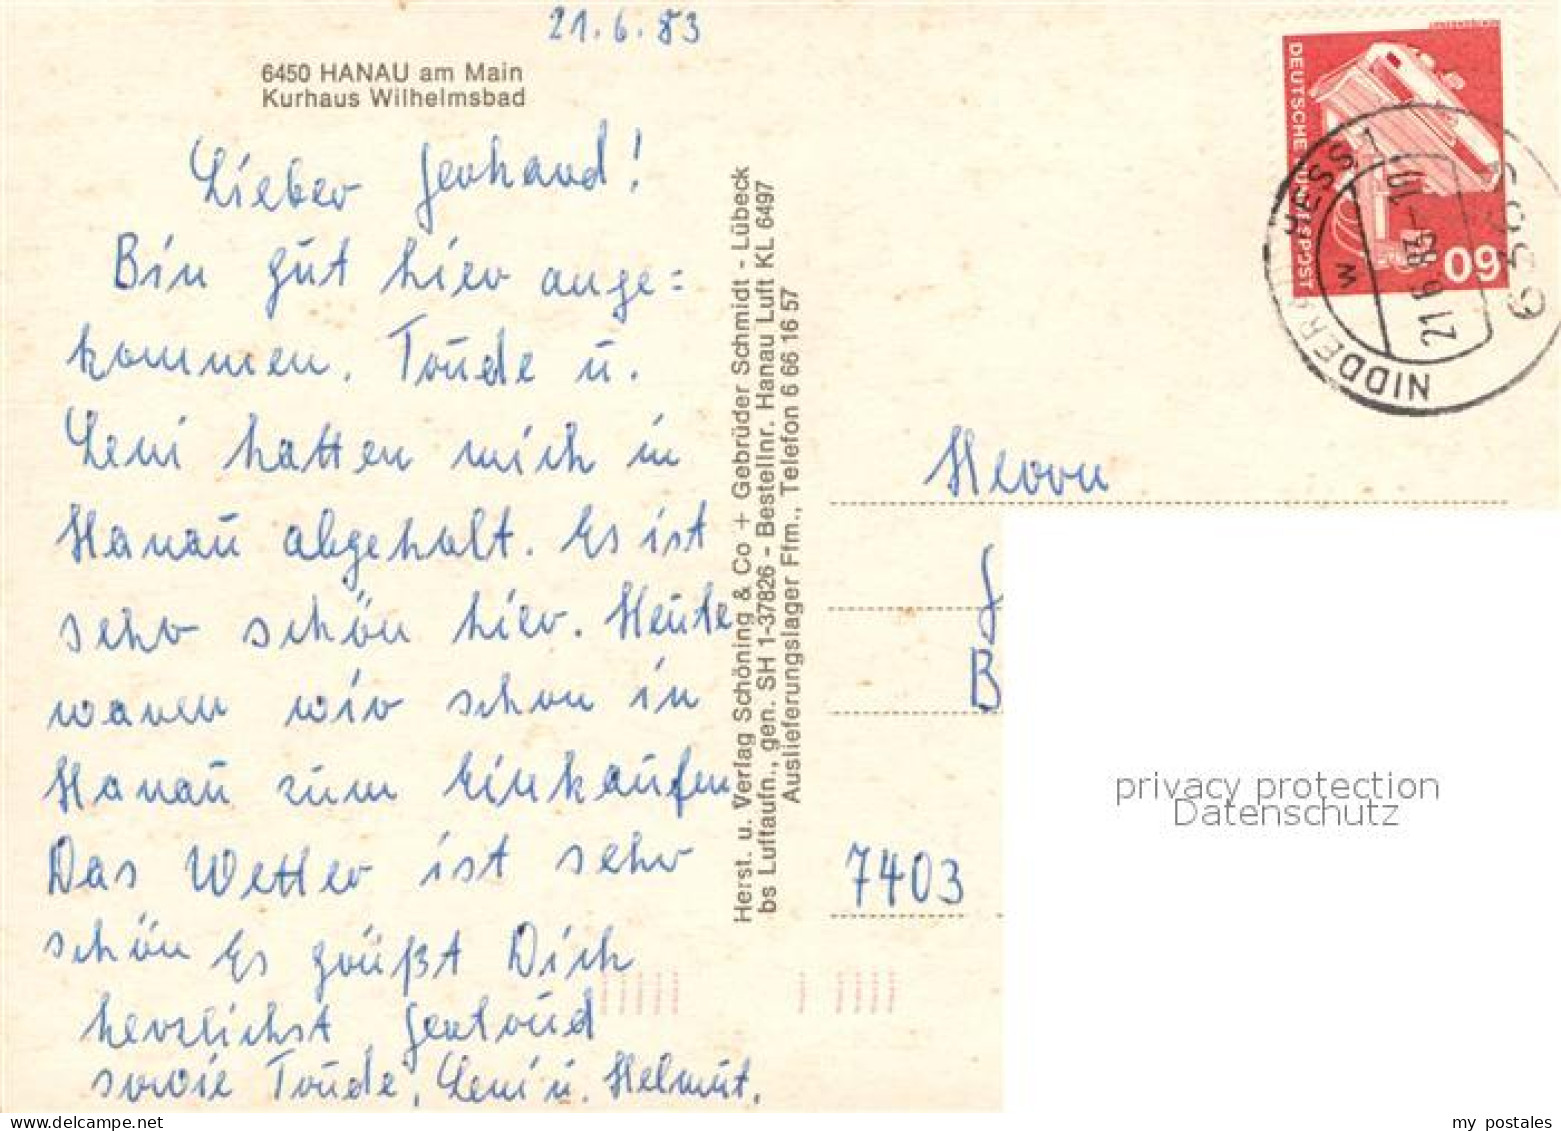 21.6.83
6450 HANAU am Main
Kurhaus Wilhelmsbad
Lieber Gerhard!
Bin gut hier ange=
kommen. Trude u.
Leni hatten mich in
Hanau abgeholt. Es ist
sehr schön hier. Heute
waren wir schon in
Hanau zum Einkaufen
Das Wetter ist sehr
schön Es grüßt Dich
herzlichst Gertrud
sowie Trude, Leni u. Helmut.
Herst. u. Verlag Schöning & Co + Gebrüder Schmidt - Lübeck
bs Luftaufn., gen. SH 1-37826 - Bestellnr. Hanau Luft KL 6497
Auslieferungslager Ffm., Telefon 6 66 16 57
DEUTSCHE BUNDESPOST
60
21.6.83-10
w
6369
Herrn
G
B
7403
privacy protection
Datenschutz
my postales